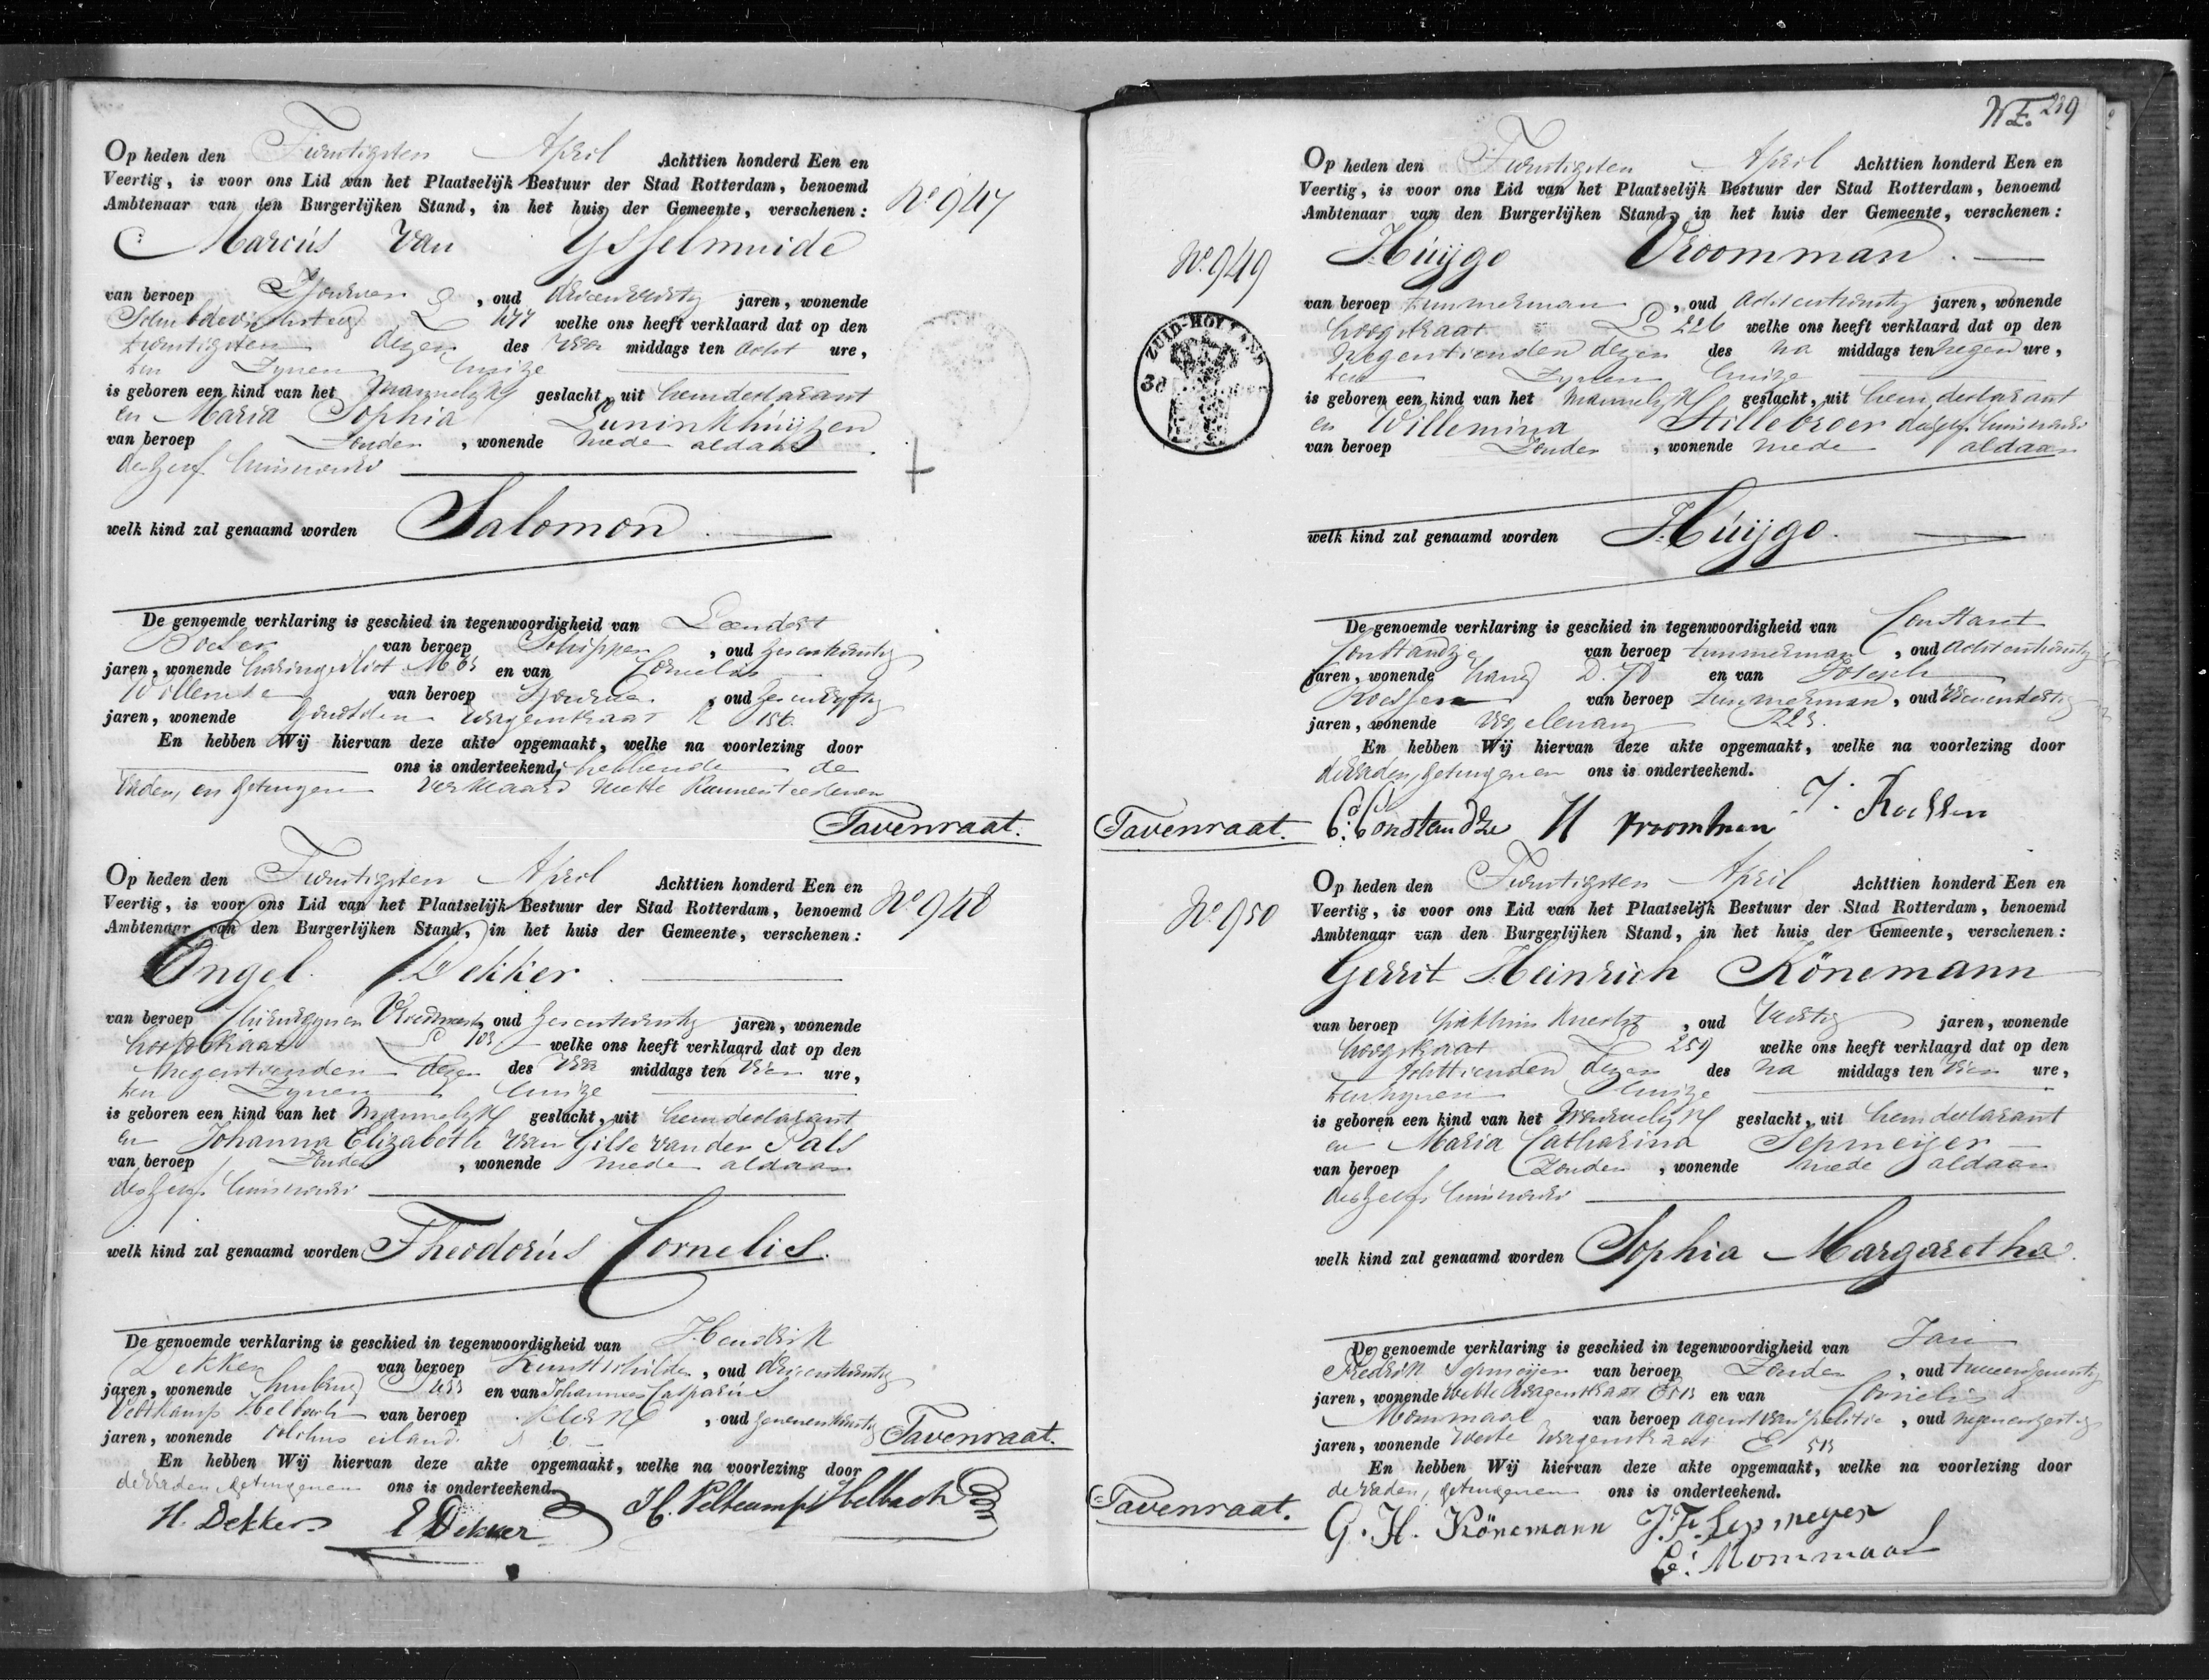 Op heden den Twintigsten April Achttien honderd Een en
Veertig, is voor ons Lid van het Plaatselijk Bestuur der Stad Rotterdam, benoemd
Ambtenaar van den Burgerlijken Stand, in het huis der Gemeente, verschenen:
No 947
Marcus Van Ysselmuide
van beroep Sjouwer, oud drieenveertig jaren, wonende
L 477 welke ons heeft verklaard dat op den
twintigsten dezer des voor middags ten acht ure,
ten Zynen huize
is geboren een kind van het Mannelyk geslacht, uit hem declarant
en Maria Sophia Luninkhuijzen
van beroep Zonder, wonende mede aldaar
deszelfs huisvrouw
welk kind zal genaamd worden Salomon.
De genoemde verklaring is geschied in tegenwoordigheid van Leendert
van beroep Schipper, oud
jaren, wonende haringvliet M en van Cornelis
van beroep Sjouwer, oud
jaren, wonende Wagenstraat
En hebben Wij hiervan deze akte opgemaakt, welke na voorlezing door
ons is onderteekend, hebbende de
Vader, en getuigen verklaard niet te kunnen teekenen
Tavenraat.
Op heden den Twintigsten April Achttien honderd Een en
Veertig, is voor ons Lid van het Plaatselijk Bestuur der Stad Rotterdam, benoemd
Ambtenaar van den Burgerlijken Stand, in het huis der Gemeente, verschenen:
No 948
Engel Dekker
van beroep Chirurgyn en Vroedmeester, oud jaren, wonende
hoofdstraat 103 welke ons heeft verklaard dat op den
Negentienden dezer des voor middags ten vier ure,
ten Zynen huize
is geboren een kind van het Mannelyk geslacht, uit hem declarant
en Johanna Elizabeth van Gilse van der Pals
van beroep Zonder, wonende mede aldaar
deszelfs huisvrouw
welk kind zal genaamd worden Theodorus Cornelis.
De genoemde verklaring is geschied in tegenwoordigheid van Hendrik
Dekker van beroep Kunstschilder, oud drieentwintig
jaren, wonende en van Johannes Casparus
Veltkamp Helbach van beroep Klerk, oud zevenentwintig
jaren, wonende eiland 6
En hebben Wij hiervan deze akte opgemaakt, welke na voorlezing door
de Vader, getuigen en ons is onderteekend.
Tavenraat.
H. Dekker E Dekker J.C. Veltcamp Helbach
W.E. 239
Op heden den Twintigsten April Achttien honderd Een en
Veertig, is voor ons Lid van het Plaatselijk Bestuur der Stad Rotterdam, benoemd
Ambtenaar van den Burgerlijken Stand, in het huis der Gemeente, verschenen:
No 949
ZUID-HOLLAND
Húijgo Vroomman.
van beroep timmerman, oud achtentwintig jaren, wonende
hoogstraat L 226 welke ons heeft verklaard dat op den
Negentienden dezer des na middags ten negen ure,
ten Zynen huize
is geboren een kind van het Mannelyk geslacht, uit hem declarant
en Willemina Hillebroer deszelfs huisvrouw
van beroep Zonder, wonende mede aldaar
welk kind zal genaamd worden Húijgo.
De genoemde verklaring is geschied in tegenwoordigheid van Constant
Constandze van beroep timmerman, oud achtentwintig
jaren, wonende en van Joseph
Roessen van beroep timmerman, oud vierendertig
jaren, wonende
En hebben Wij hiervan deze akte opgemaakt, welke na voorlezing door
de vader, getuigen en ons is onderteekend.
Tavenraat. C. Constandze H vroomman J. Roessen
Op heden den Twintigsten April Achttien honderd Een en
Veertig, is voor ons Lid van het Plaatselijk Bestuur der Stad Rotterdam, benoemd
Ambtenaar van den Burgerlijken Stand, in het huis der Gemeente, verschenen:
No 950
Gerrit Heinrich Könemann
van beroep pakhuis knecht, oud Veertig jaren, wonende
hoogstraat L 259 welke ons heeft verklaard dat op den
Achttienden dezer des na middags ten vier ure,
ten zynen huize
is geboren een kind van het Vrouwelyk geslacht, uit hem declarant
en Maria Catharina Sepmeijer
van beroep Zonder, wonende mede aldaar
deszelfs huisvrouw
welk kind zal genaamd worden Sophia Margaretha.
De genoemde verklaring is geschied in tegenwoordigheid van Jan
Fredrik Sepmeijer van beroep Zonder, oud tweeenzeventig
jaren, wonende Weste Wagenstraat E 513 en van Cornelis
Mommaal van beroep agent van politie, oud negenenzestig
jaren, wonende Weste Wagenstraat E 513
En hebben Wij hiervan deze akte opgemaakt, welke na voorlezing door
de vader, getuigen en ons is onderteekend.
Tavenraat. G. H. Könemann J. F. Sepmeyer
C: Mommaal